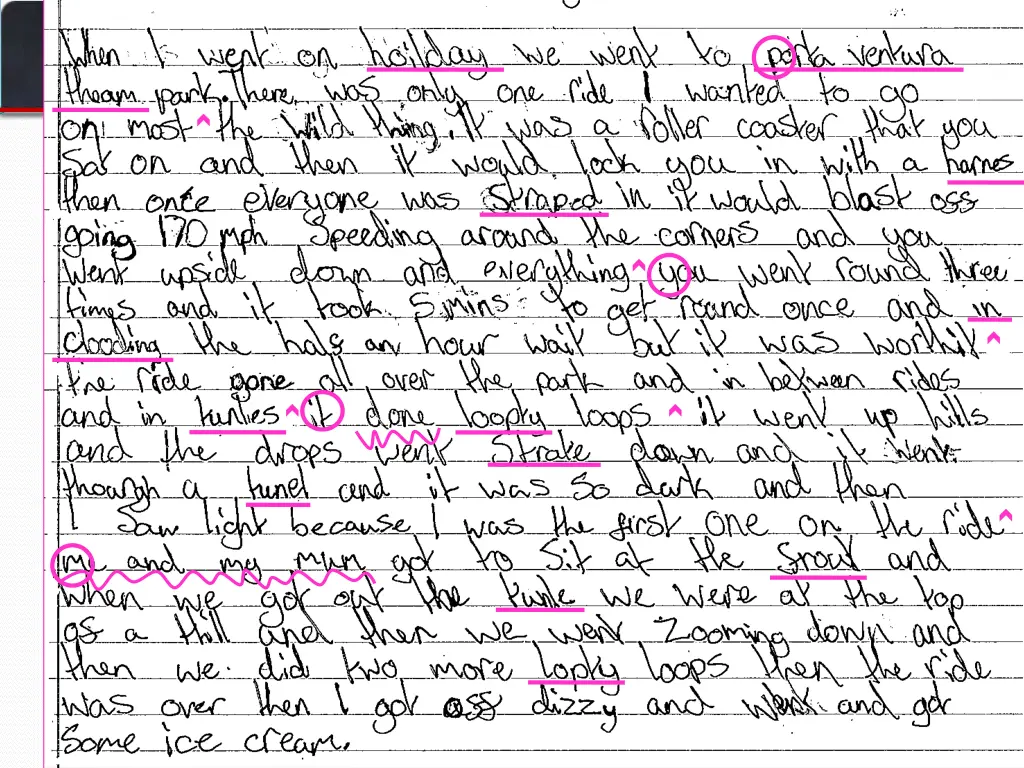 When I went on hoilday we went to porta ventura
theam park. There was only one ride I wanted to go
on most the Wild thing. It was a roller coaster that you
Sat on and then it would lock you in with a harnes
then once everyone was Straped in it would blast off
going 170 mph Speeding around the corners and you
went upside down and everything you went round three
times and it took 5 mins to get round once and in
clooding the half an hour wait but it was worthit
the ride gone all over the park and in between rides
and in tunles it done loopty loops it went up hills
and the drops went Strate down and it went
though a tunel and it was so dark and then
I Saw light because I was the first one on the ride
me and my mum got to Sit at the frout and
when we got out the tunle we were at the top
of a Hill and then we went Zooming down and
then we did two more lopty loops then the ride
was over then I got off dizzy and went and got
Some ice cream.